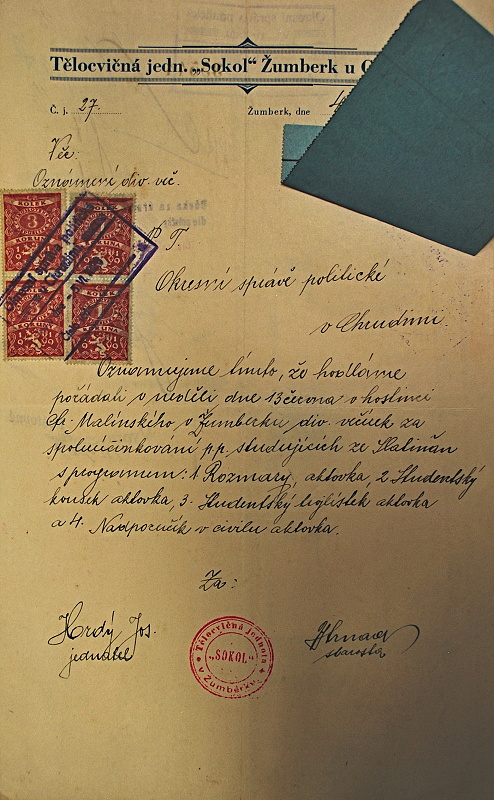 Tělocvičná jedn. „Sokol“ Žumberk u
Č. j. 27.
Žumberk, dne
Věc:
Oznámení div. več.
P. T.
Okresní správě politické
v Chrudimi.
Oznamujeme tímto, že hodláme
pořádati v neděli dne 13 června v hostinci
Fr. Malinského v Žumberku div. večírek za
spoluúčinkování p.p. studujících ze Slatiňan
s programem: 1 Rozmary, aktovka, 2 Studentský
kousek aktovka, 3. Studentský aktovka
a 4. Nadporučík v civilu aktovka.
Za:
Hrdý Jos.
jednatel
starosta
Tělocvičná Jednota
„SOKOL“
v Žumberku.
KOLEK
3
KORUNY